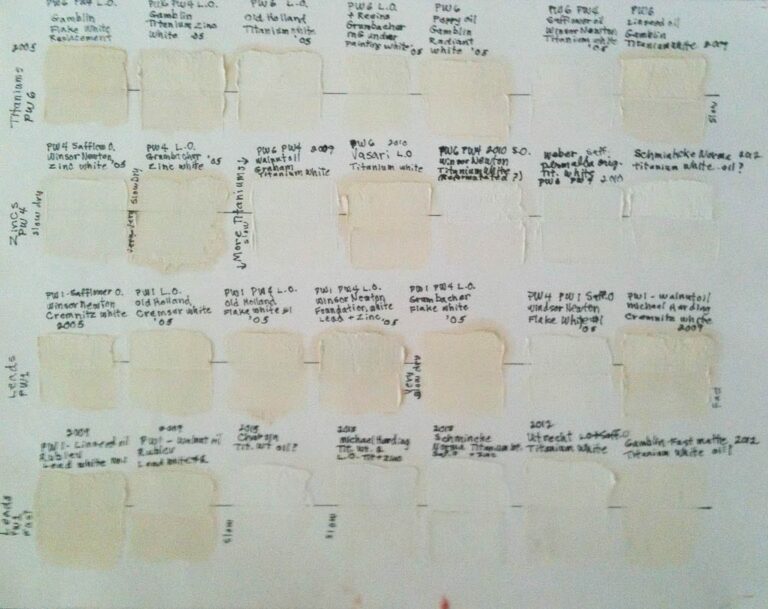 PW6 PW4 L.O.
Gamblin
Flake White
Replacement
PW6 PW4 L.O.
Gamblin
Titanium Zinc
White '05
PW6 L.O.
Old Holland
Titanium White
'05
PW6 L.O.
+ Resins
Grumbacher
MG under
Painting white
'05
PW6
Poppy oil
Gamblin
Radiant
White '05
PW6 PW4
Safflower oil
Winsor Newton
Titanium White
'05
PW6
Linseed oil
Gamblin
Titanium White 2009
2005
Titaniums
PW6
Slow
PW4 Safflow O.
Winsor Newton
Zinc white '05
PW4 L.O.
Grumbacher '05
Zinc white
PW6 PW4 2009
Walnut oil
Graham
Titanium White
PW6 2010
Vasari L.O
Titanium white
PW6 PW4 2010 S.O.
Winsor Newton
Titanium White
(Reformulated?)
Weber Saff.
Permalba orig.
Tit. white
PW6 PW4 2010
Schmincke Norma 2012
titanium white - oil?
Zincs
PW4
slow dry
Very very Slow Dry
More Titaniums
slow
PW1 - Safflower O.
Winsor Newton
Cremnitz white
2005
PW1 L.O.
Old Holland
Cremser white
'05
PW1 PW4 L.O.
Old Holland
Flake white #1
'05
PW1 PW4 L.O.
Winsor Newton
Foundation white
Lead + Zinc
'05
PW1 PW4 L.O.
Grumbacher
Flake white
'05
PW4 PW1 Saff.O
Windsor Newton
Flake White #1
'05
PW1 - walnut oil
Michael Harding
Cremnitz white
2009
Leads
PW1
Very
slow dry
Fast
2009
PW1 - Linseed oil
Rublev
Lead white No.1
2009
PW1 - Walnut oil
Rublev
Lead white #2
2013
Tit. WT oil?
2013
Michael Harding
Tit. wt. 2
L.O. Tit + zinc
2013
Schmincke
Norma Titanium
+ zinc
2012
Utrecht LO + Saff.O
Titanium White
Gamblin - Fast matte 2012
Titanium White oil?
Leads
PW1
Fast
Slow
Slow